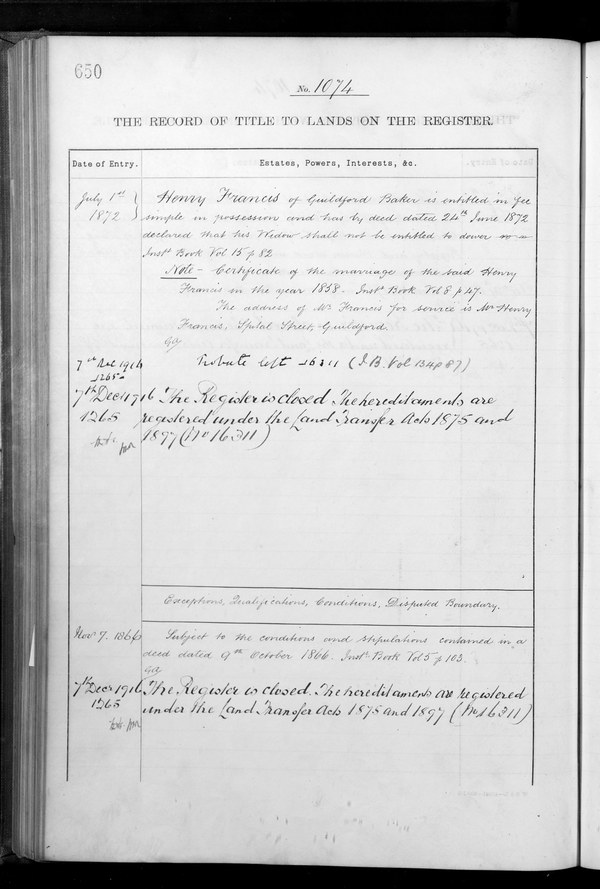 650
No. 1074
THE RECORD OF TITLE TO LANDS ON THE REGISTER.
Date of Entry.
Estates, Powers, Interests, &c.
July 1st 1872
Henry Francis of Guildford Baker is entitled in fee
simple in possession and has by deed dated 24th June 1872
declared that his Widow shall not be entitled to dower
Inst. Book Vol 15 p 82
Note - Certificate of the marriage of the said Henry
Francis in the year 1858. Inst. Book Vol 8 p 47.
The address of Mr Francis for service is Mr Henry
Francis, Spital Street, Guildford.
7th Dec 1916
1265
Probate left 16311 (I.B. Vol 134 p 87)
7th Decr 1916
1265
The Register is closed The hereditaments are
registered under the Land Transfer Acts 1875 and
1897 (No 16311)
Exceptions, Qualifications, Conditions, Disputed Boundary.
Novr 7. 1866
Subject to the conditions and stipulations contained in a
deed dated 9th October 1866. Inst. Book Vol 5 p 103.
7th Decr 1916
1265
The Register is closed. The hereditaments are registered
under the Land Transfer Acts 1875 and 1897 (No 16311)